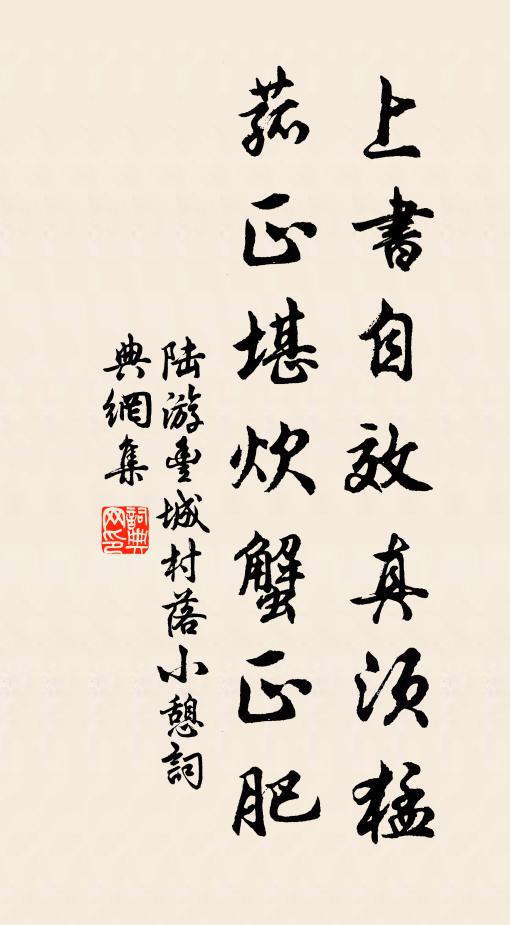 上書自效真須猛
菰正堪炊蟹正肥
陸游豐城村落小憩詞
典網集
詞典
网印